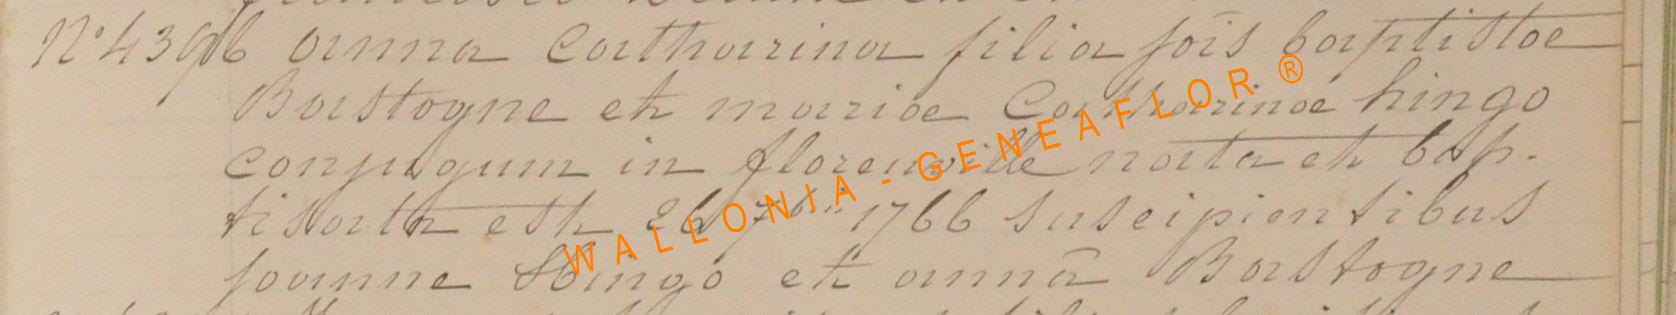 N° 4396 anna Catharina filia jois baptistae
Bastogne et mariae Catharinae hingo
conjugum in florenville nata et bap-
tisata est 26 7bris 1766 suscipientibus
joanne Hingo et annâ Bastogne
WALLONIA - GENEAFLOR ®